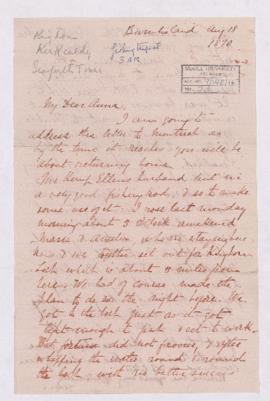 Burntisland Aug 18
1890
Kinghorn
Kirkcaldy
Seafield Tower
fishing trip at
3 AM
McGILL UNIVERSITY
ARCHIVES
ACC. NO.
My Dear Anna
I am going to
address this letter to Montreal as
by the time it reaches you will be
about returning home
Ellens husband lent me
a very good fishing rod, & so to make
some use of it I rose last monday
morning about 3 o'clock awakened
& who are staying here
now & we together set out for Kinghorn
Loch which is about 2 miles from
here We had of course made the
plan to do so the night before. We
got to the loch just as it got
light enough to set to work.
But fortune did not favour, & after
whipping the water round & round
the loch with no better success